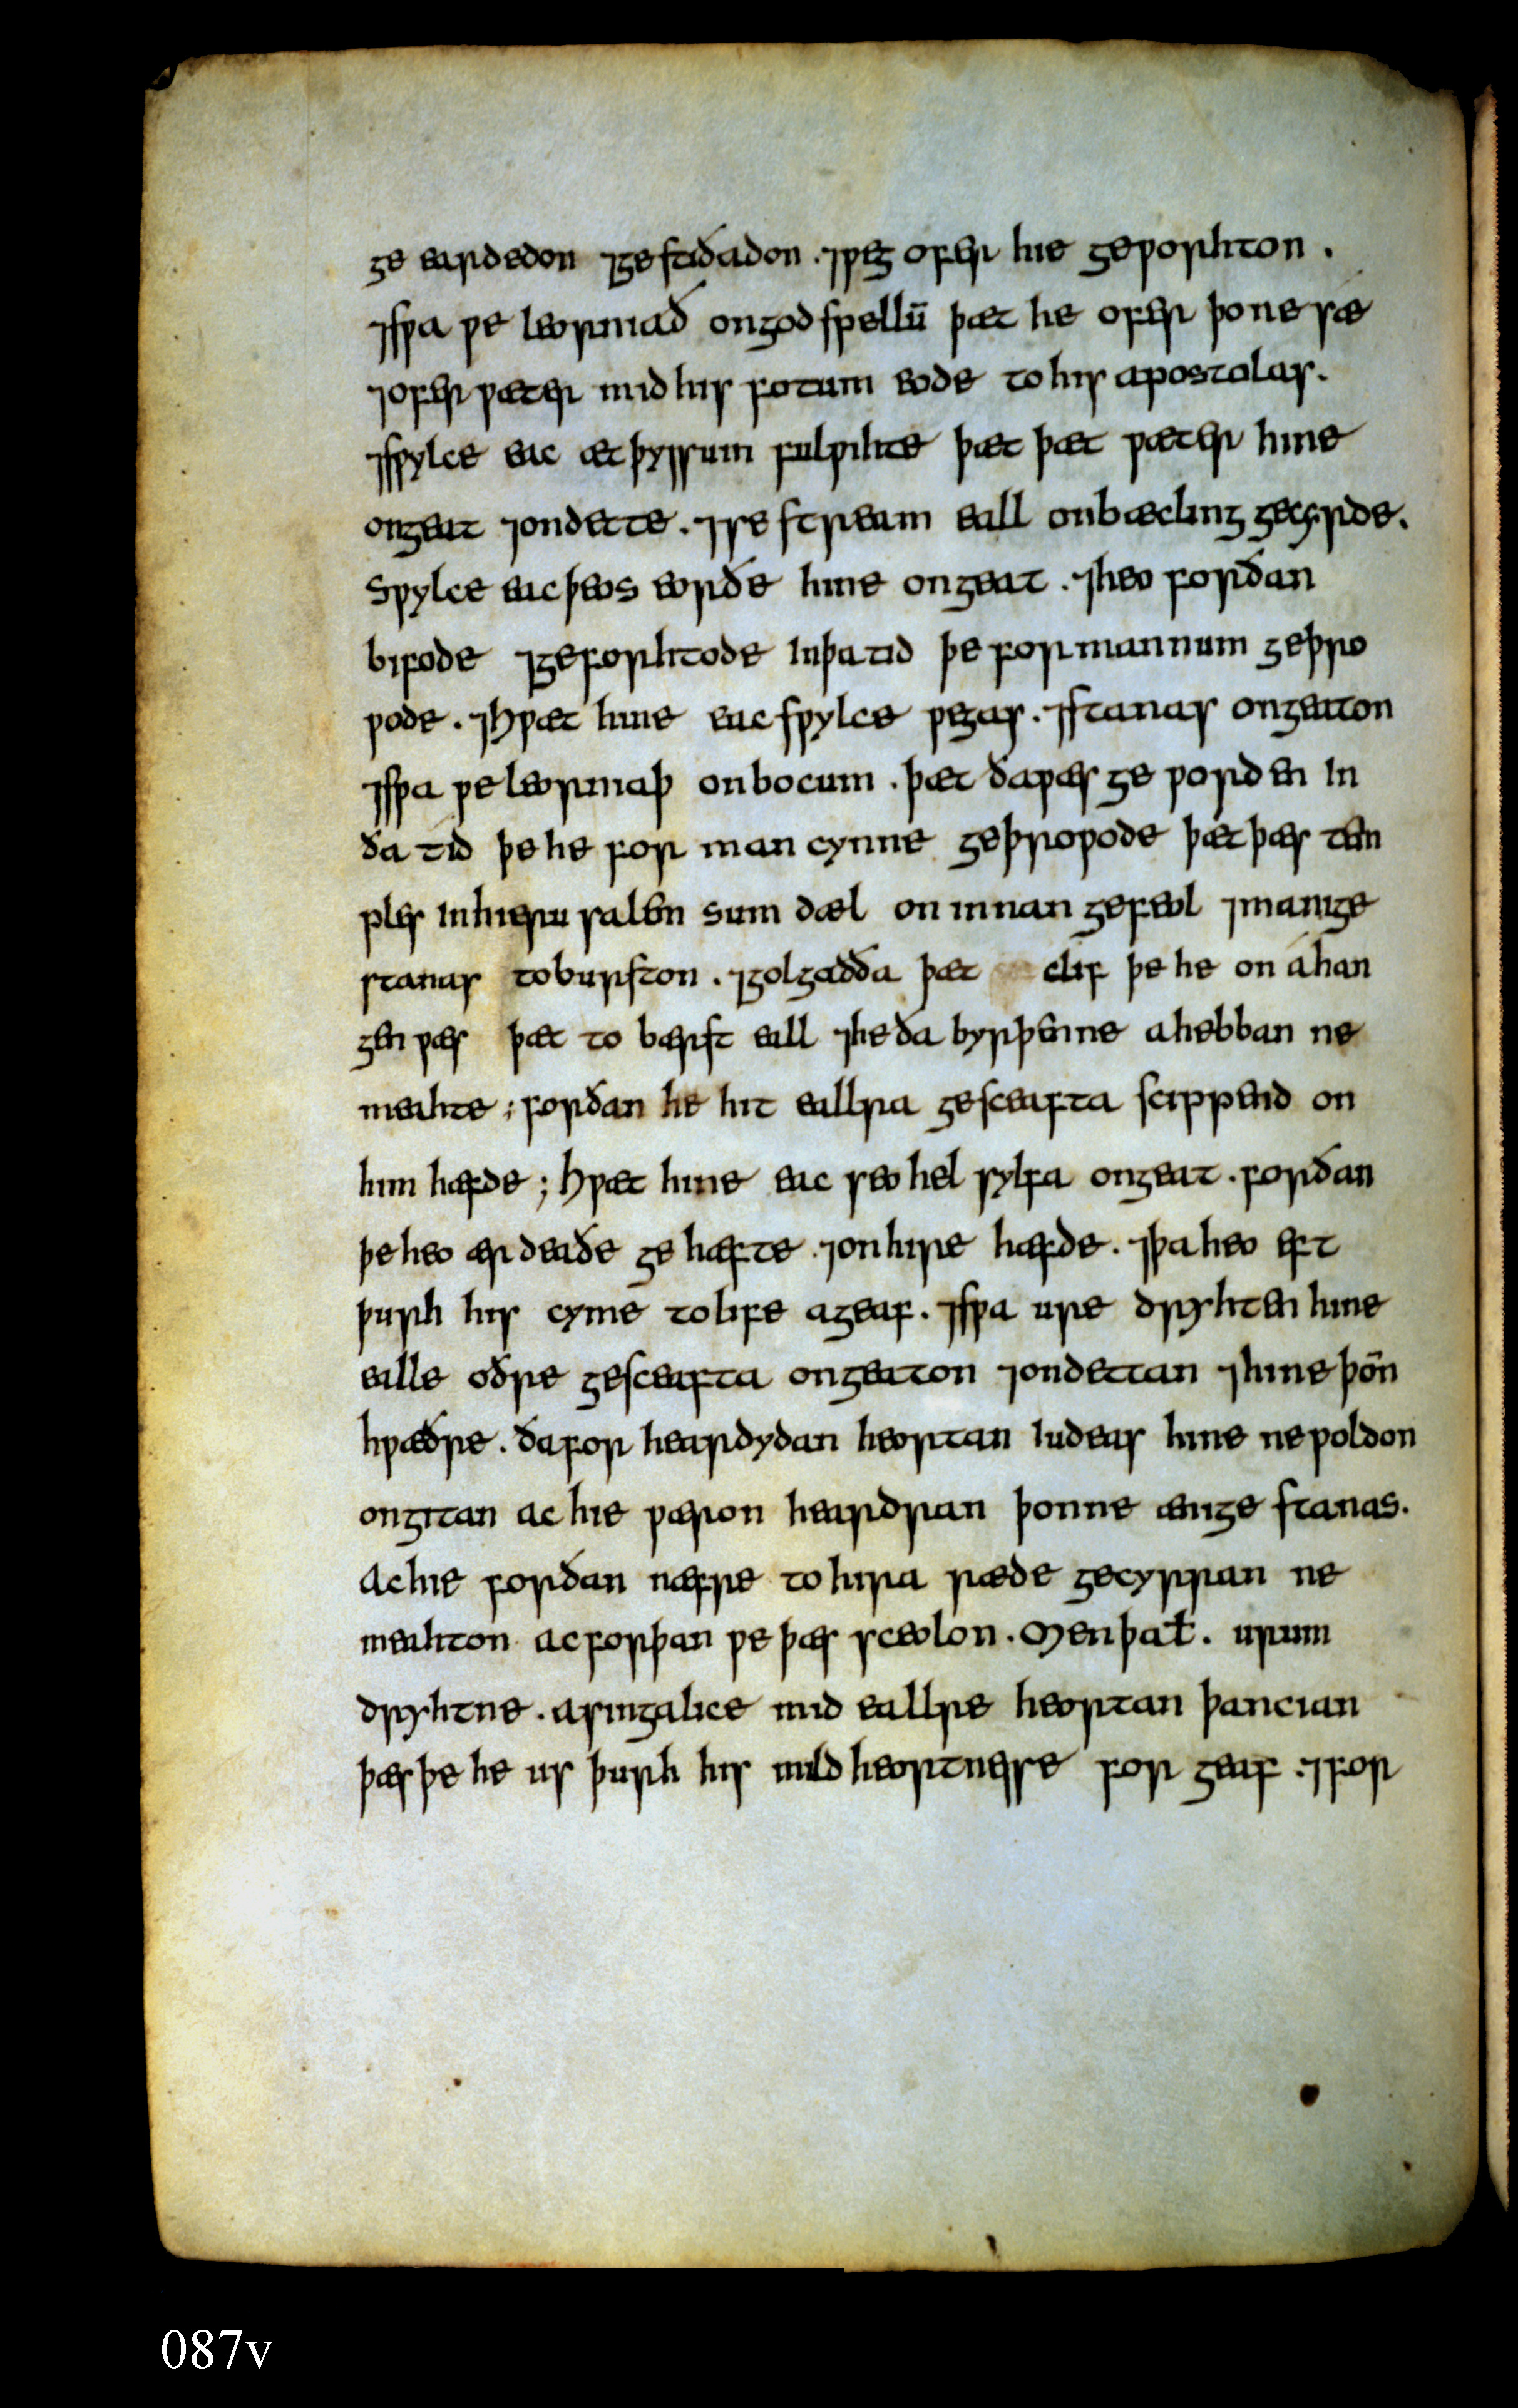 ge eardedon ⁊gestaðadon. ⁊ƿeg ofer hie geƿorhton.
⁊sƿa ƿe leorniað ongodspellū þæt he ofer þone sæ
⁊ofer ƿæter mid his fotum eode to his apostolas.
⁊sƿylce eac æt þyssum fulƿihte þæt þæt ƿæter hine
ongeat ⁊ondette. ⁊se stream eall onbæcling gecyrde.
Sƿylce eac þeos eorðe hine ongeat. ⁊heo forðan
bifode ⁊geforhtode inþa tid þe for mannum geþro
ƿode. ⁊Hƿæt hine eac sƿylce ƿegas. ⁊stanas ongeaton
⁊sƿa ƿe leorniaþ on bocum. þæt ðaƿæs ge ƿorden in
ða tid þe he for man cynne geþroƿode þæt þæs tem
ples inhieru salem sum dæl on innan gefeol ⁊manige
stanas toburston. ⁊golgaðða þæt clif þe he on áhan
gen ƿæs þæt to bærst eall ⁊he ða byrþenne ahebban ne
meahte; forðan he hit eallra gesceafta scippend on
him hæfde; Hƿæt hine eac seo hel sylfa ongeat. forðan
þe heo ær deaðe ge hæfte. ⁊on hire hæfde. ⁊þa heo eft
þurh his cyme to life ageaf. ⁊sƿa ure dryhten hine
ealle oðre gesceafta ongeaton ⁊ondettan ⁊hine þoñ
hƿæðre. ðafor heardydan heortan Iudeas hine ne ƿoldon
ongitan ac hie ƿæron heardran þonne ænige stanas.
Ac hie forðan næfre to hira ræde gecyrran ne
meahton ac forþan ƿe þæs sceolon. Men þa ꝉ. urum
dryhtne. asingalice mid eallre heortan þancian
þæs þe he us þurh his mildheortnesse for geaf. ⁊for
087v